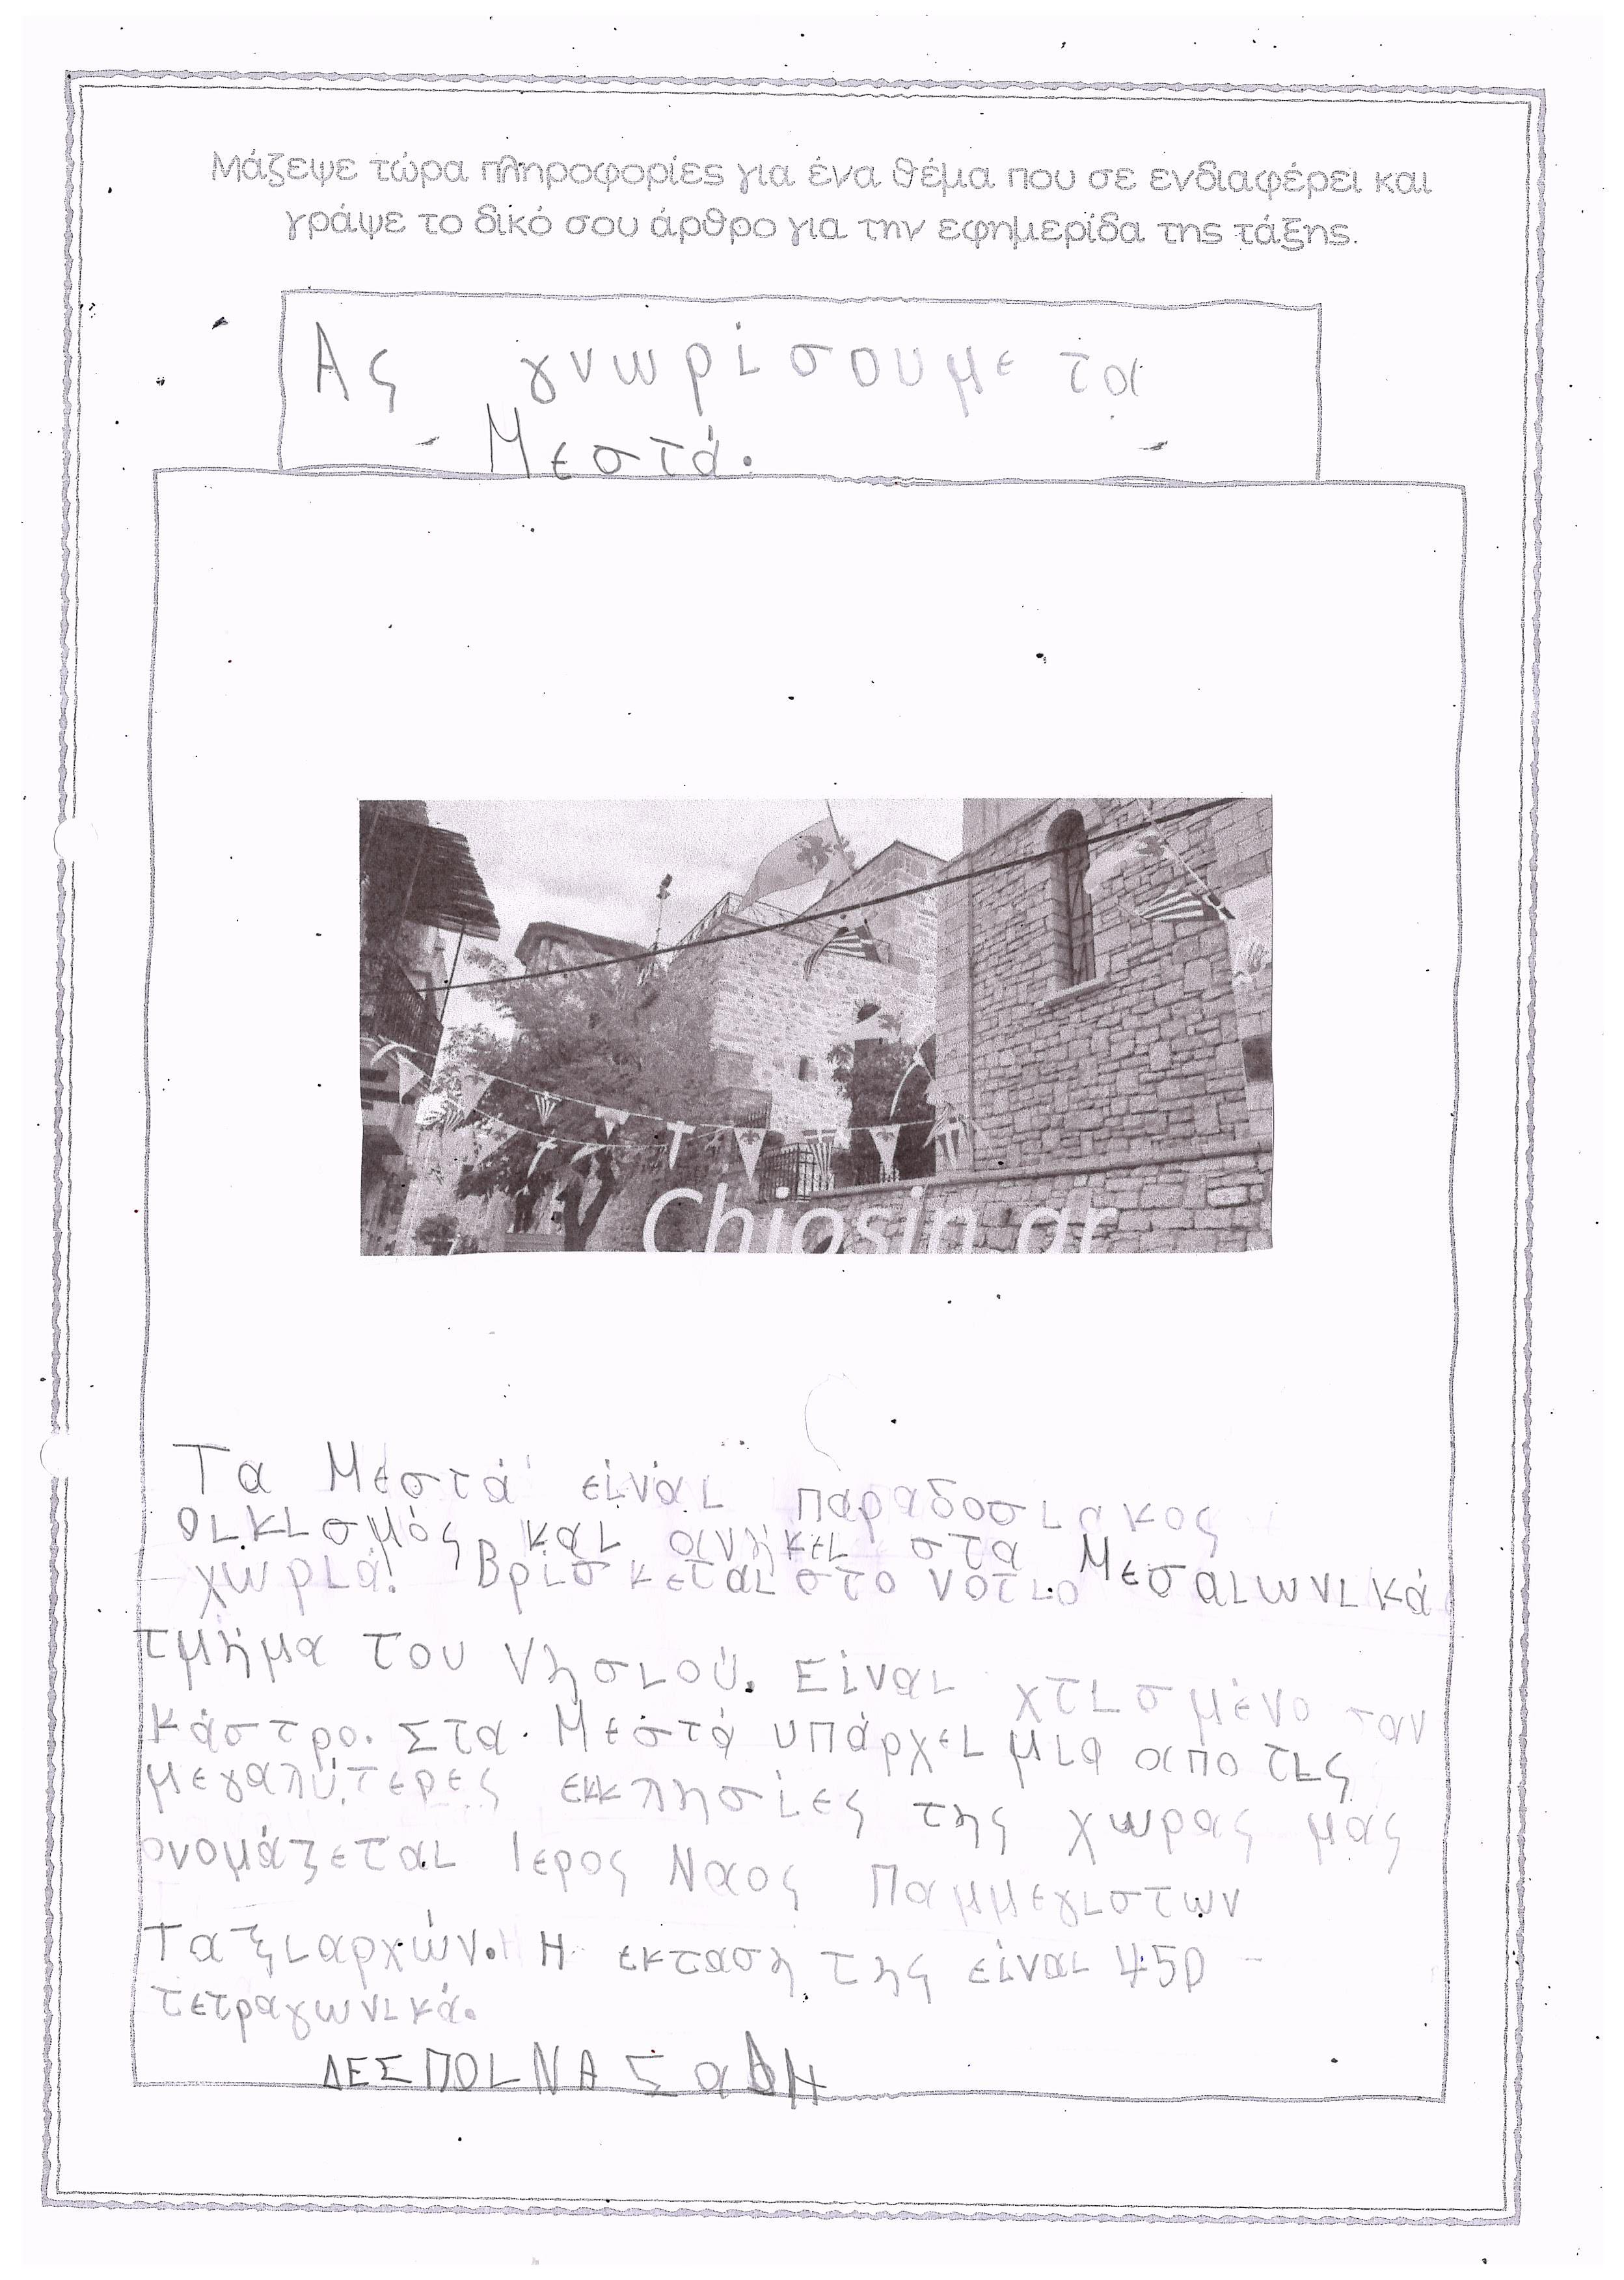 Μάζεψε τώρα πληροφορίες για ένα θέμα που σε ενδιαφέρει και
γράψε το δικό σου άρθρο για την εφημερίδα της τάξης.
Ας γνωρίσουμε τα
Μεστά.
Chiosin.gr
Τα Μεστά είναι παραδοσιακος
οικισμός και ανήκει στα Μεσαιωνικά
χωριά. Βρίσκεται στο νοτιο
τμήμα του νησιού. Είναι χτισμένο σαν
κάστρο. Στα Μεστά υπάρχει μια απο τις
μεγαλύτερες εκκλησίες της χωρας μας
ονομάζεται Ιερος Ναος Παμμεγιστων
Ταξιαρχών. Η εκταση της είναι 450
τετραγωνικά.
ΔΕΣΠΟΙΝΑ